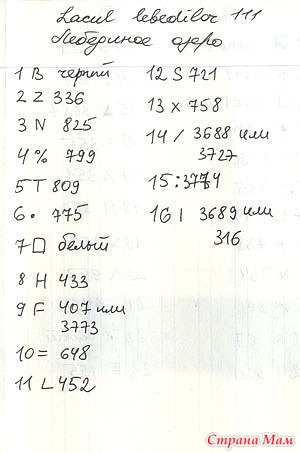 Lacul lebedilor 111
Лебединое озеро
1 B черный
2 Z 336
3 N 825
4 % 799
5 T 809
6 • 775
7 □ белый
8 H 433
9 F 407 или
3773
10 = 648
11 L 452
12 S 721
13 x 758
14 / 3688 или
3727
15 : 3774
16 | 3689 или
316
Страна Мам